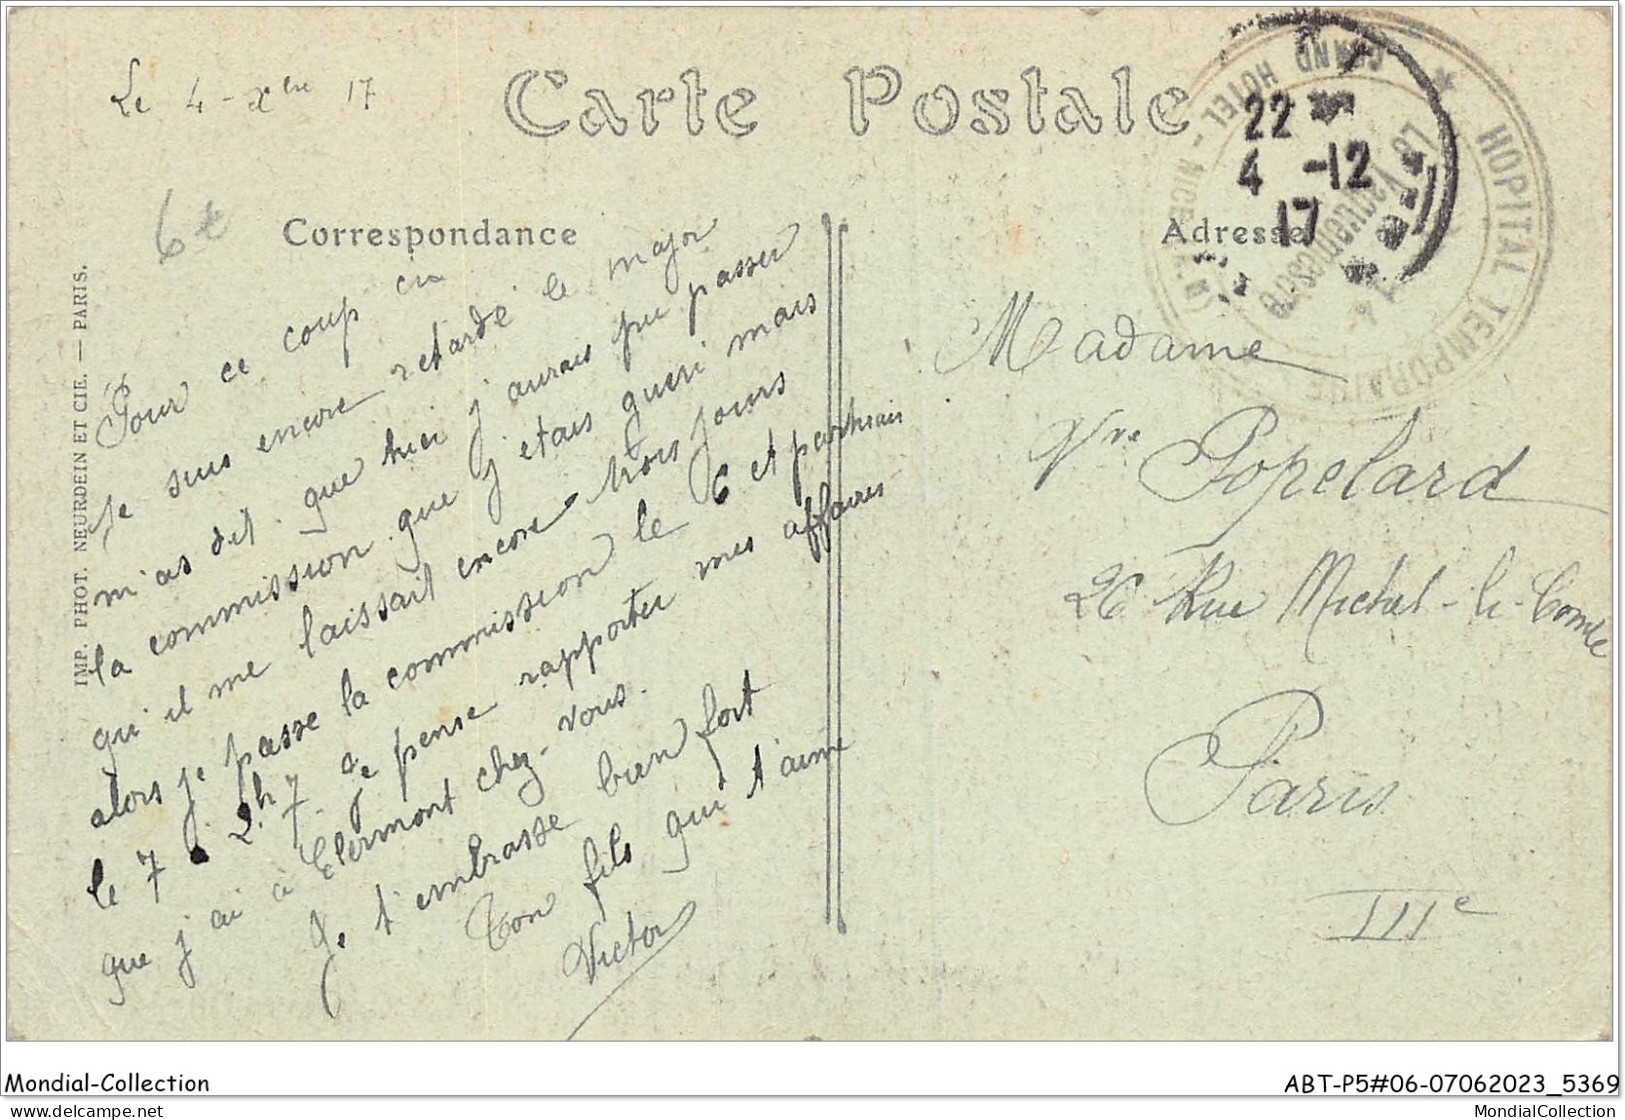 Le 4 - Xbre 17
Carte Postale
6€
Correspondance
Adresse
22
4 -12
17
HOPITAL TEMPORAIRE
GRAND HOTEL -
Le Vaguemestre
IMP. PHOT. NEURDEIN ET CIE. — PARIS.
Pour ce coup ci
je suis encore retardé le major
m'as dit que hier j'aurais pu passer
la commission que j'étais gueri mais
qu'il me laissait encore trois jours
alors je passe la commission le 6 et partirais
le 7 2h 7. Je pense rapporter mes affaires
que j'ai à Clermont chez-vous.
Je t'embrasse bien fort
Ton fils qui t'aime
Victor
Madame
Vve Popelard
26 Rue Michel-le-Comte
Paris
IIIe
Mondial-Collection
ABT-P5#06-07062023_5369
delcampe.net
MondialCollection